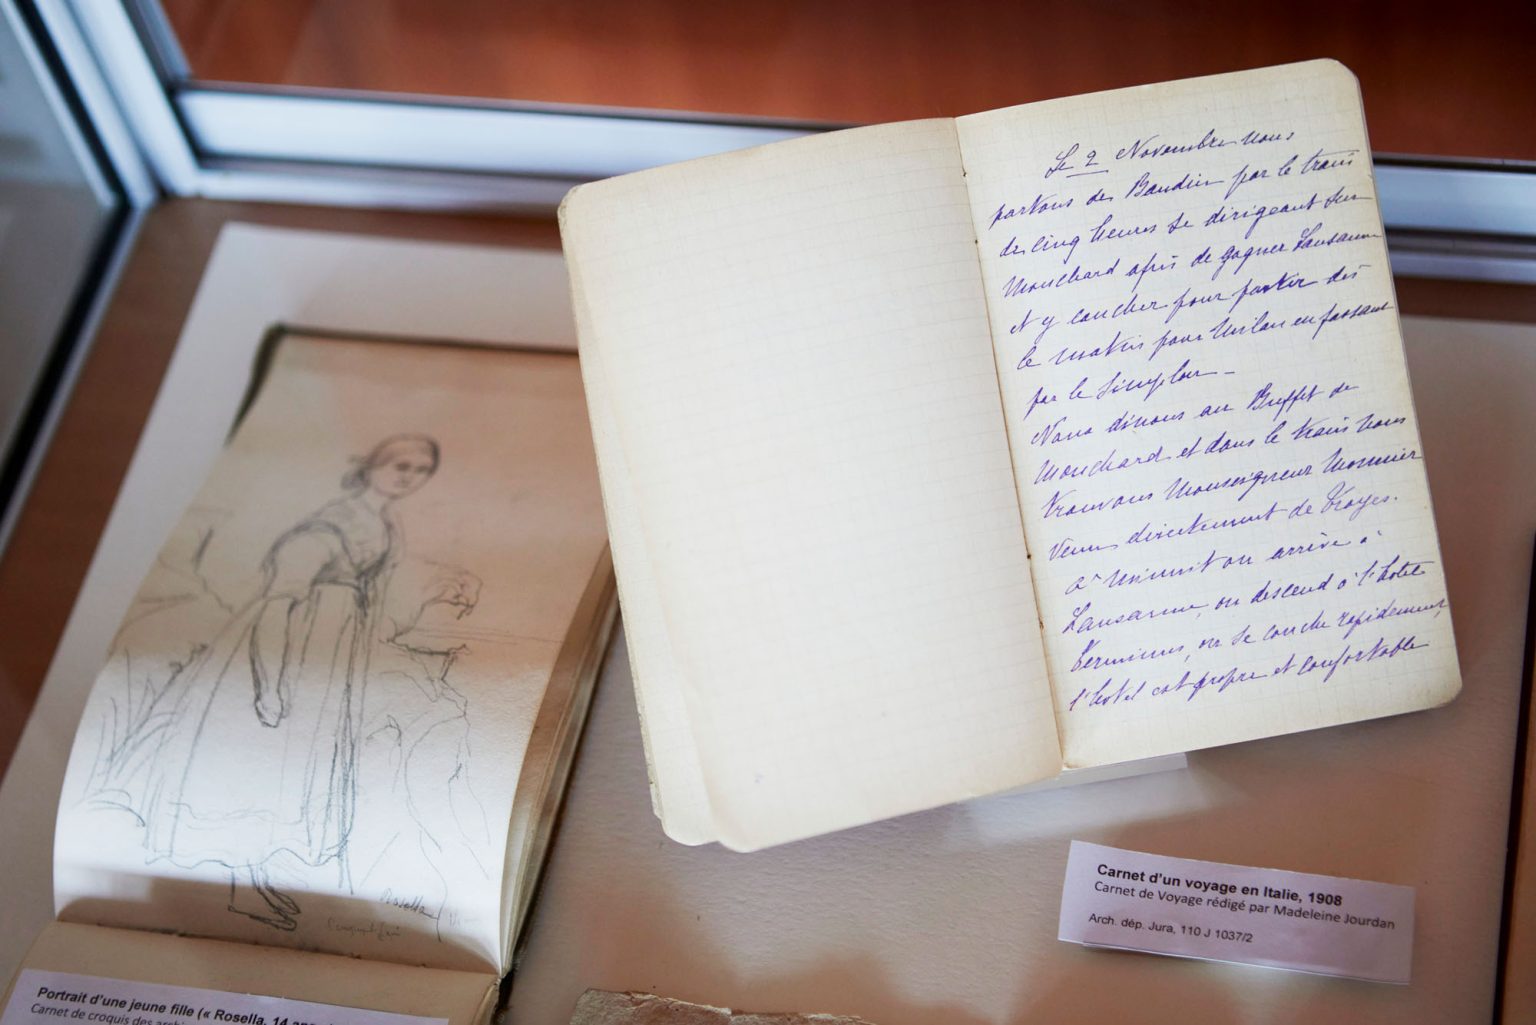 Le 2 Novembre nous
partons de Baudin par le train
de cinq heures se dirigeant sur
Mouchard afin de gagner Lausanne
et y coucher pour partir dès
le matin pour Milan en passant
par le Simplon -
Nous dînons au Buffet de
Mouchard et dans le train nous
trouvons Monseigneur Monnier
venu directement de Troyes.
à minuit on arrive à
Lausanne, on descend à l'hotel
Terminus, on se couche rapidement,
l'hotel est propre et confortable
Rosella
Carnet d'un voyage en Italie, 1908
Carnet de Voyage rédigé par Madeleine Jourdan
Arch. dép. Jura, 110 J 1037/2
Portrait d'une jeune fille (« Rosella, 14
Carnet de croquis des